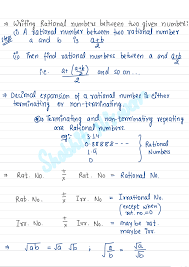 → Writing Rational numbers between two given numbers
(i) A rational number between two rational number
a and b is a+b/2
(ii) Then find rational numbers between a and a+b/2
i.e. a+(a+b/2)/2 and so on ...
→ Decimal expansion of a rational number is either
terminating or non-terminating.
Terminating and non-terminating repeating
are Rational numbers.
eg: 3.14
0.88888---
1.9
0
Rational
Numbers
→ Rat. No. ± × Rat. No = Rational No.
→ Rat No. ± × Irr. No. = Irrational No.
(except when
rat. no = 0)
→ Irr. No. ± × Irr. No. = maybe rat
maybe irr.
→ √ab = √a √b ; √a/b = √a/√b